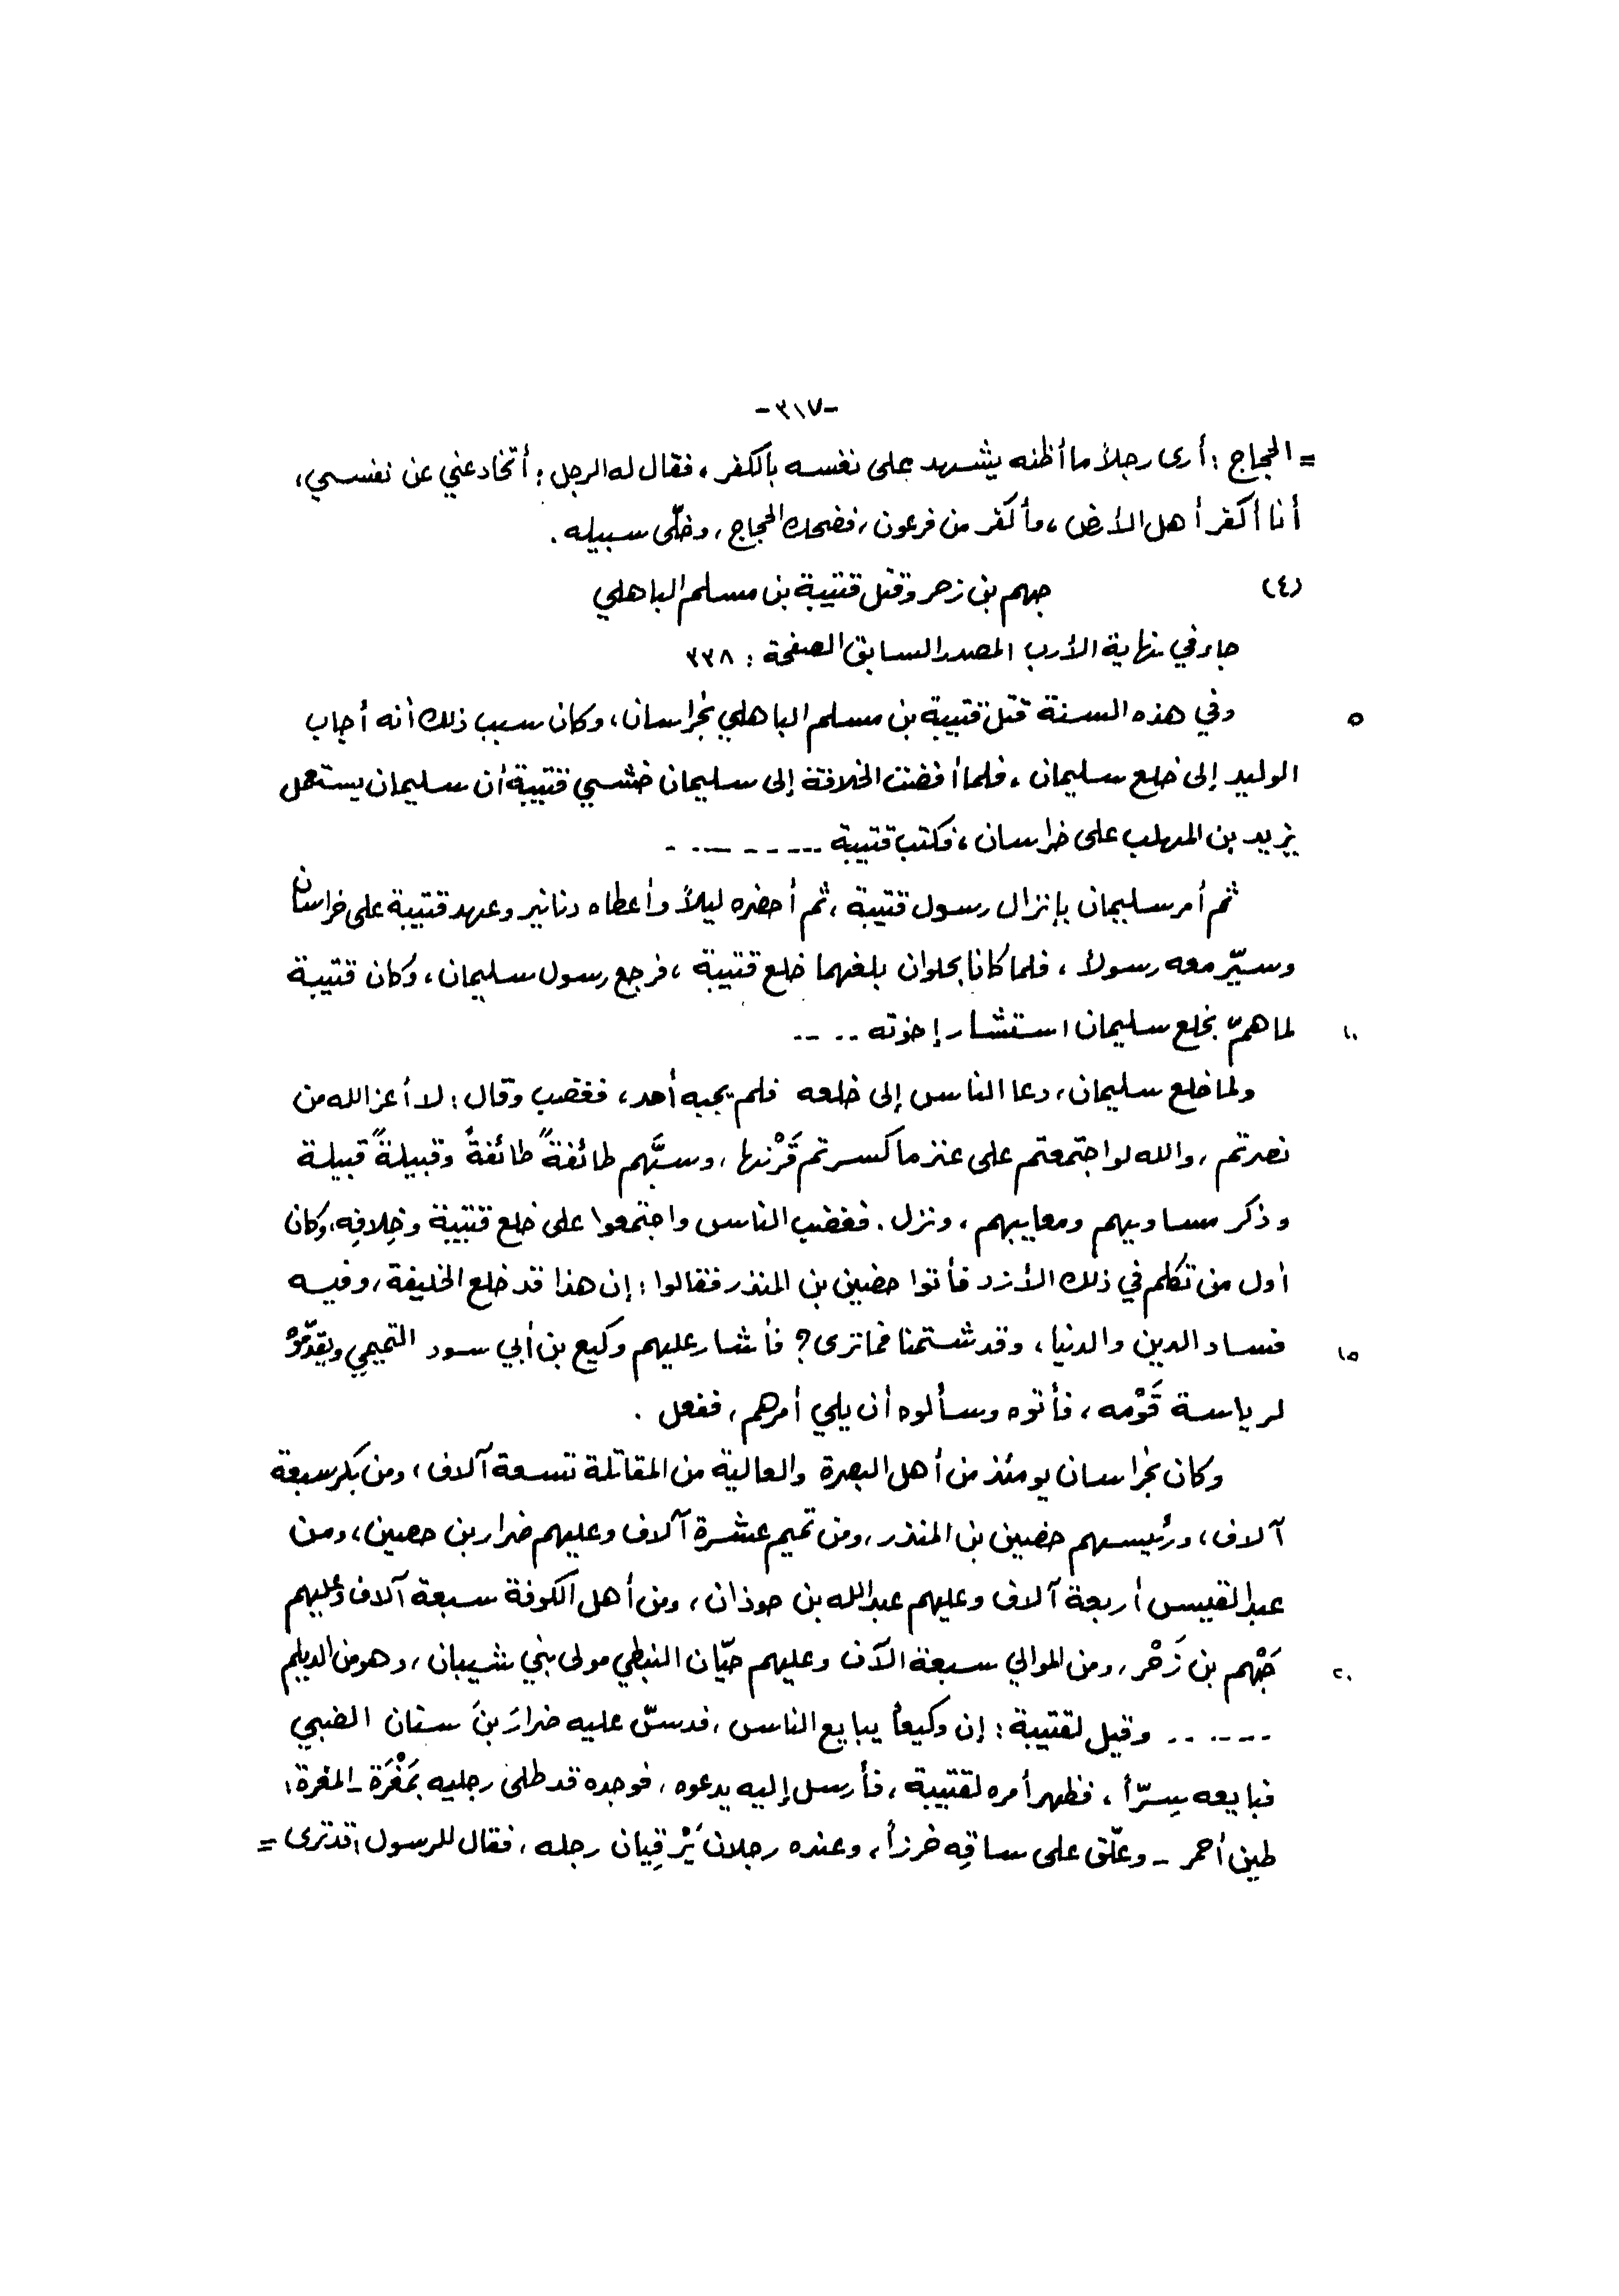 -٣١٧-
= الحجاج : أرى رجلاً ما أظنه يشهد على نفسه بالكفر ، فقال له الرجل : أتخادعني عن نفسي ،
أنا أكفر أهل الأرض ، وأكفر من فرعون ، فضحك الحجاج ، وخلّى سبيله .
(٤) جهم بن زحر وقتل قتيبة بن مسلم الباهلي
جاء في نهاية الأرب المصدر السابق الصفحة : ٣٣٨
٥ وفي هذه السنة قتل قتيبة بن مسلم الباهلي بخراسان ، وكان سبب ذلك أنه أجاب
الوليد إلى خلع سليمان ، فلما أفضت الخلافة إلى سليمان خشي قتيبة أن سليمان يستعمل
يزيد بن المهلب على خراسان ، فكتب قتيبة --------
ثم أمر سليمان بإنزال رسول قتيبة ، ثم أحضره ليلاً وأعطاه دنانير وعهد قتيبة على خراسان
وسيّر معه رسولاً ، فلما كانا بحلوان بلغهما خلع قتيبة ، فرجع رسول سليمان ، وكان قتيبة
١٠ لما همّ بخلع سليمان استشار إخوته -- --
ولما خلع سليمان ، دعا الناس إلى خلعه فلم يجبه أحد ، فغضب وقال : لا أعز الله من
نصرتم ، والله لو اجتمعتم على عنز ما كسرتم قَرْنها ، وسبَّهم طائفةً طائفةً وقبيلةً قبيلة
وذكر مساويهم ومعايبهم ، ونزل . فغضب الناس واجتمعوا على خلع قتيبة وخِلافِه ، وكان
أول من تكلم في ذلك الأزد فأتوا حضين بن المنذر فقالوا : إن هذا قد خلع الخليفة ، وفيه
١٥ فساد الدين والدنيا ، وقد شتمنا فما ترى ؟ فأشار عليهم وكيع بن أبي سود التميمي ويقدّموْ
لرياسة قَوْمه ، فأتوه وسألوه أن يلي أمرهم ، ففعل .
وكان بخراسان يومئذ من أهل البصرة والعالية من المقاتلة تسعة آلاف ، ومن بكر سبعة
آلاف ، ورئيسهم حضين بن المنذر ، ومن تميم عشرة آلاف وعليهم ضرار بن حصين ، ومن
عبد القيس أربعة آلاف وعليهم عبد الله بن حوذان ، ومن أهل الكوفة سبعة آلاف وعليهم
٢٠ جَهْم بن زَحْر ، ومن الموالي سبعة الآف وعليهم حيّان النبطي مولى بني شيبان ، وهو من الديلم
------ وقيل لقتيبة : إن وكيعاً يبايع الناس ، فدسّ عليه ضرارَ بنَ سنان الضبي
فبايعه سِرّاً ، فظهر أمره لقتيبة ، فأرسل إليه يدعوه ، فوجده قد طلى رجليه بمَغْرَة - المغرة :
طين أحمر - وعلّق على ساقِه خرزاً ، وعنده رجلان يَرْقِيان رجله ، فقال للرسول : قد ترى =